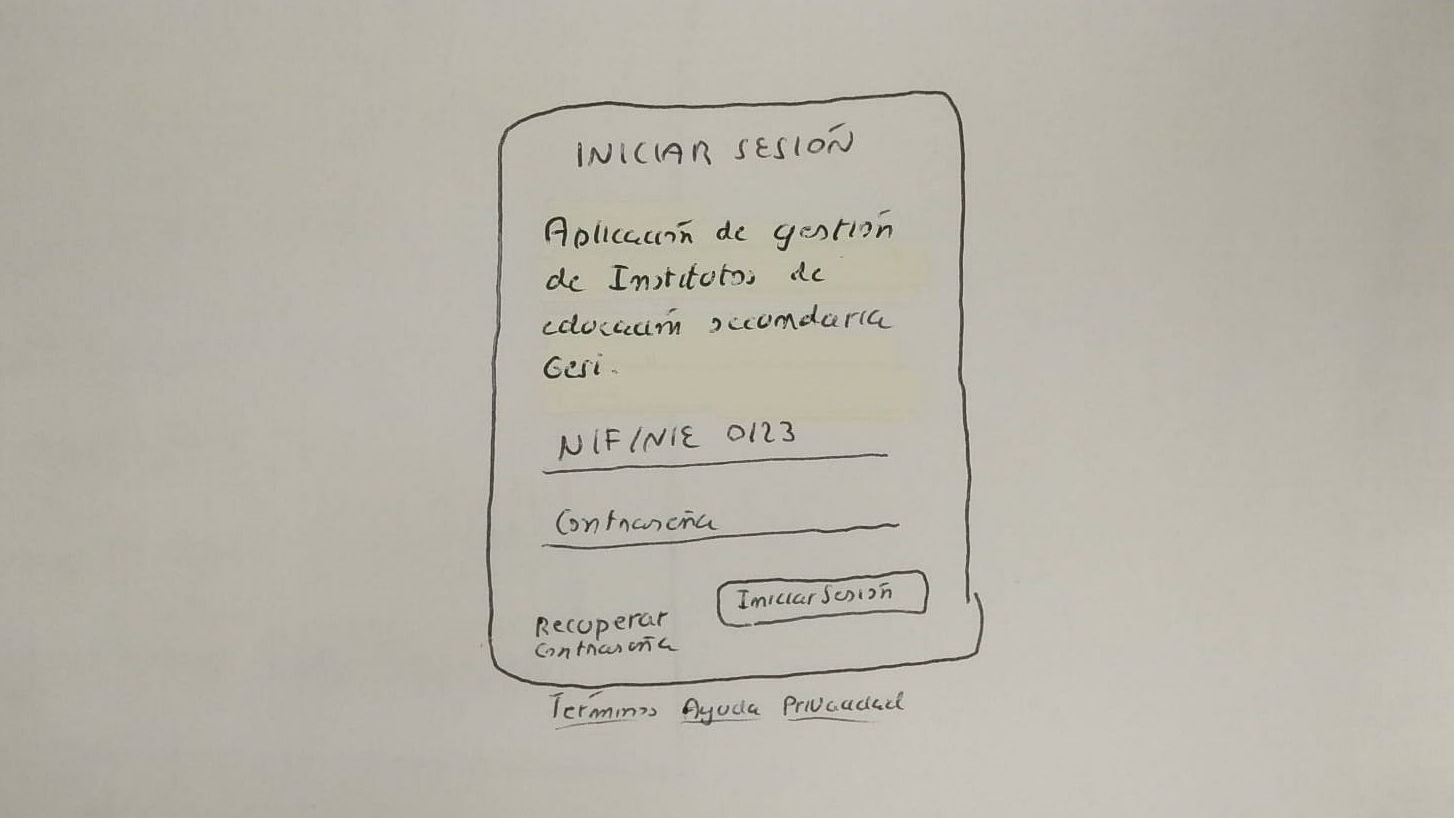 INICIAR SESIÓN
Aplicación de gestión
de Institutos de
educación secundaria
Gesi.
NIF/NIE 0123
Contraseña
Iniciar Sesión
Recuperar
contraseña
Términos Ayuda Privacidad